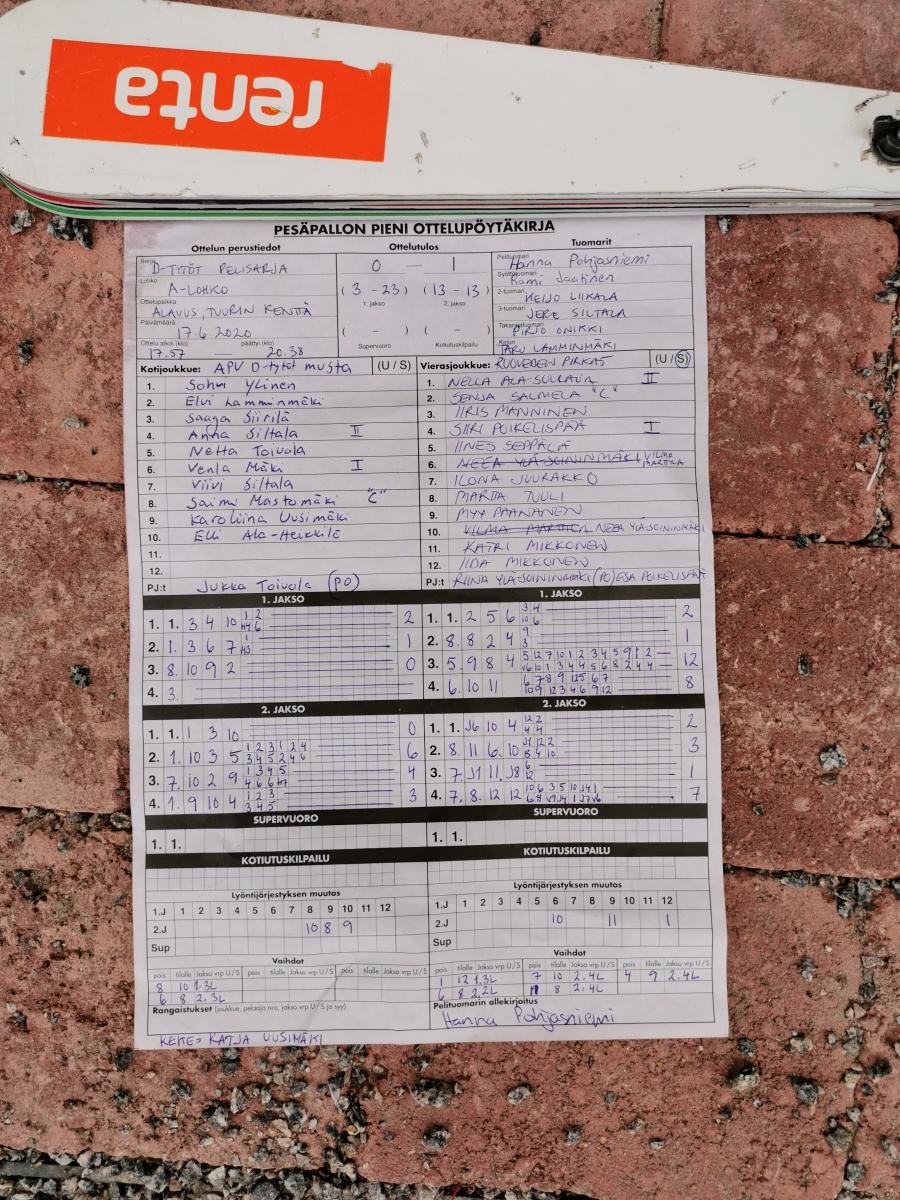 renta
PESÄPALLON PIENI OTTELUPÖYTÄKIRJA
Ottelun perustiedot
Sarja
D-TYTÖT PELISARJA
Lohko
A-LOHKO
Ottelupaikka
ALAVUS, TUURIN KENTTÄ
Päivämäärä
17.6 2020
Ottelu alkoi (klo) päättyi (klo)
17.57 — 20.38
Ottelutulos
0 — 1
(3 - 23) (13 - 13)
1. jakso 2. jakso
( - ) ( - )
Supervuoro Kotiutuskilpailu
Tuomarit
Pelituomari
Hanna Pohjasniemi
Syöttötuomari
Jaatinen
2-tuomari
KEIJO LIIKALA
3-tuomari
JERE SILTALA
Takarajatuomari
PIRJO ONIKKI
Kirjuri
TARU LAMMINMÄKI
Kotijoukkue: APV D-tytöt musta (U / S)
1. Sohvi Ylinen
2. Elvi Lamminmäki
3. Saaga Siirilä
4. Anna Siltala II
5. Netta Toivola
6. Venla Mäki I
7. Viivi Siltala
8. Saimi Mastomäki "C"
9. Karoliina Uusimäki
10. Elli Ala-Heikkilä
11.
12.
PJ:t Jukka Toivola (PO)
Vierasjoukkue: RUOVEDEN PIRKAT (U / S)
1. NELLA ALA-SULKAVA II
2. SENJA SALMELA "C"
3. IIRIS MANNINEN
4. SIIRI POIKELISPÄÄ I
5. IINES SEPPÄLÄ
6. NEEA YLÄ-SOININMÄKI VILMA MARTTILA
7. ILONA JUURAKKO
8. MARTTA TUULI
9. MYY PAANANEN
10. VILMA MARTTILA NEEA YLÄ-SOININMÄKI
11. KATRI MIKKONEN
12. IIDA MIKKONEN
PJ:t RIINA YLÄ-SOININMÄKI (PO) ESA POIKELISPÄÄ
1. JAKSO
1. 1. 3 4 10 1 2 2
2. 1. 3 6 7 1
3. 8. 10 9 2 0
4. 3.
1. JAKSO
1. 1. 2 5 6 3 4 10 6 2
2. 8. 8 2 4 9 3 1
3. 5. 9 8 4 5 12 7 10 1 2 3 4 5 9 1 2 12
4. 6. 10 11 8
2. JAKSO
1. 1. 1 3 10 0
2. 1. 10 3 5 1 2 3 1 2 4 3 4 5 2 4 6 6
3. 7. 10 2 9 1 3 4 5 4
4. 1. 9 10 4 1 2 3 3 4 5 3
2. JAKSO
1. 1. J6 10 4 12 2 4 4 2
2. 8 11 6. 10 J1 12 2 5 4 10 3
3. 7. J1 11. J8 6 12 1
4. 7. 8. 12 12 10 6 3 5 10 J4 1 7
SUPERVUORO
1. 1.
SUPERVUORO
1. 1.
KOTIUTUSKILPAILU
KOTIUTUSKILPAILU
Lyöntijärjestyksen muutos
1.J 1 2 3 4 5 6 7 8 9 10 11 12
2.J 10 8 9
Sup
Lyöntijärjestyksen muutos
1.J 1 2 3 4 5 6 7 8 9 10 11 12
2.J 10 11 1
Sup
Vaihdot
pois tilalle Jakso vrp U / S pois tilalle Jakso vrp U / S pois tilalle Jakso vrp U / S
8 10 1.3L
6 8 2.3L
Vaihdot
pois tilalle Jakso vrp U / S pois tilalle Jakso vrp U / S pois tilalle Jakso vrp U / S
1 12 1.3L 7 10 2.4L 4 9 2.4L
6 8 2.2L 11 8 2.4L
Rangaistukset (joukkue, pelaaja nro, jakso vrp U / S ja syy)
Pelituomarin allekirjoitus
Hanna Pohjasniemi
KEKE= KATJA UUSIMÄKI